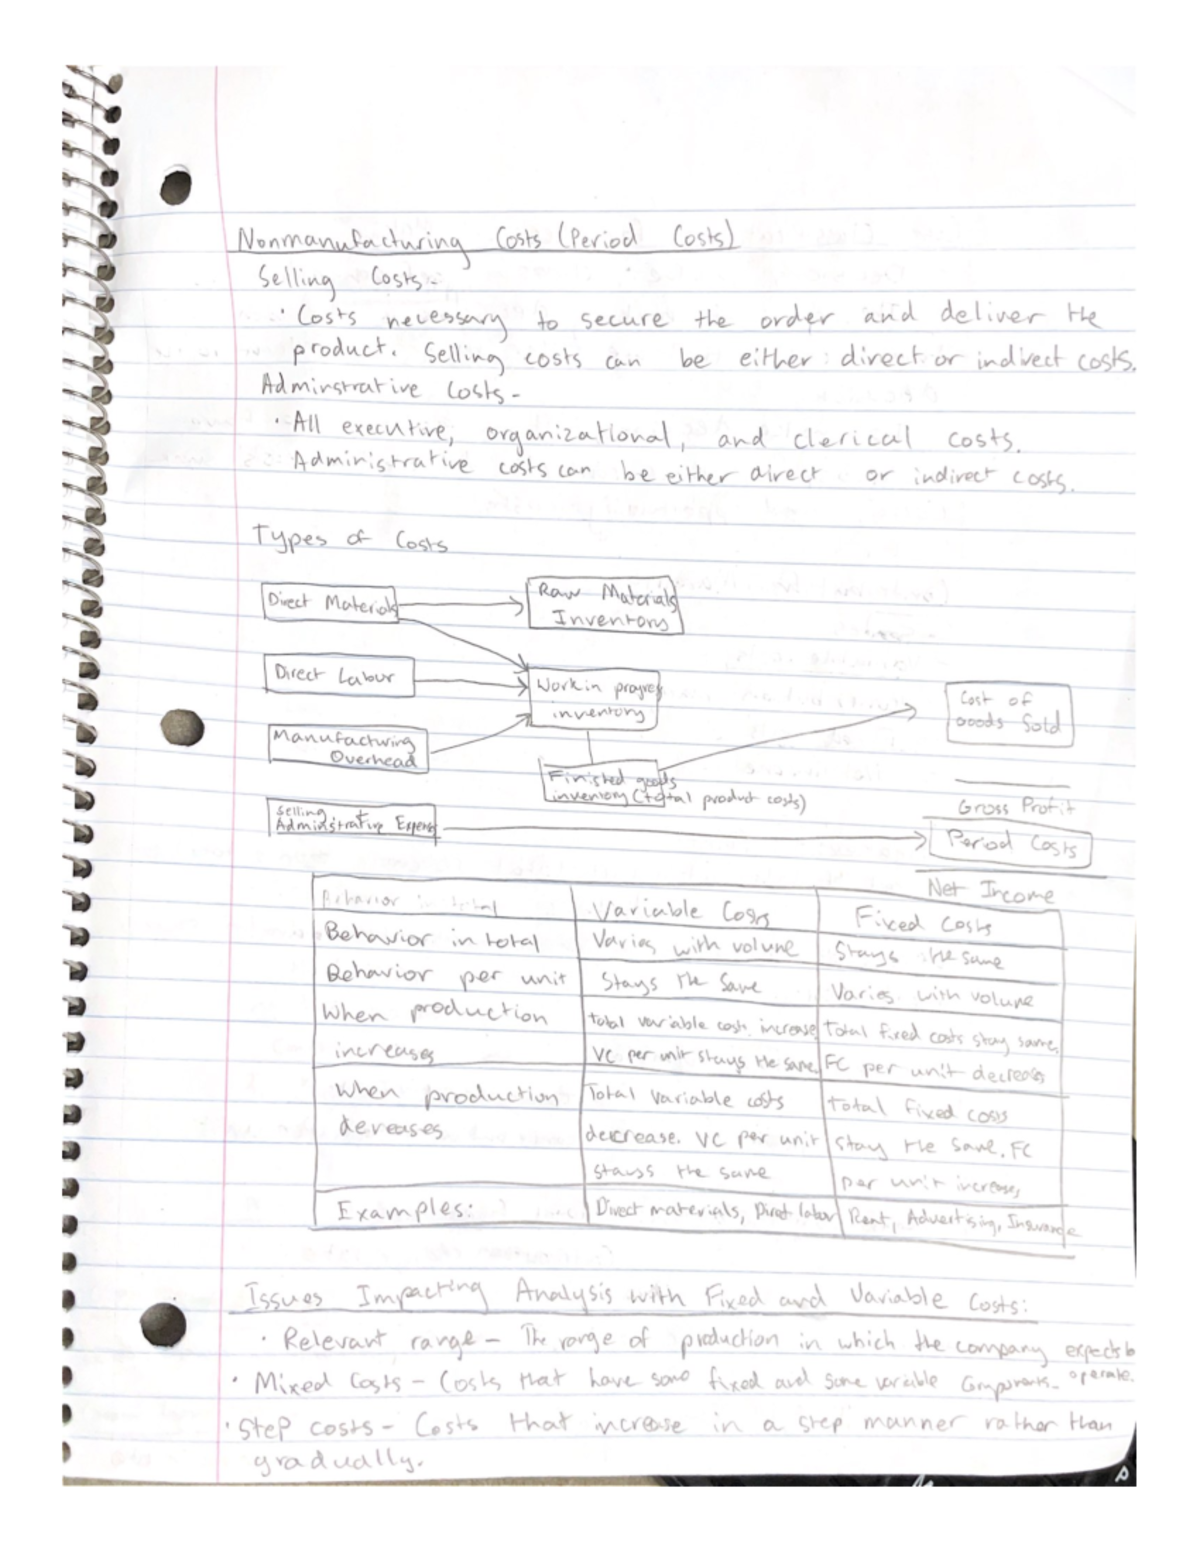 Nonmanufacturing Costs (Period Costs)
Selling Costs-
· Costs necessary to secure the order and deliver the
product. Selling costs can be either direct or indirect costs.
Adminstrative Costs-
· All executive, organizational, and clerical costs.
Administrative costs can be either direct or indirect costs.
Types of Costs
Direct Materials
Raw Materials
Inventory
Direct Labour
Work in progres
inventory
Cost of
goods Sold
Manufacturing
Overhead
Finished goods
inventory (total product costs)
Gross Profit
Selling
Adminstrative Expens
Period Costs
Net Income
Behavior in total
Variable Costs
Fixed Costs
Behavior in total
Varies with volume
Stays the same
Behavior per unit
Stays the same
Varies with volume
When production
increases
total variable cost increase
VC per unit stays the same.
Total fixed costs stay same,
FC per unit decreases
When production
devreases
Total variable costs
decrease. VC per unit
stayss the same
Total fixed costs
stay the same. FC
per unit increases
Examples:
Direct materials, Diret labor
Rent, Advertising, Insurance
Issues Impacting Analysis with Fixed and Variable Costs:
· Relevant range – The range of production in which the company expects
operate.
· Mixed Costs – Costs that have some fixed and some variable components.
· Step costs – Costs that increase in a step manner rather than
gradually.
P